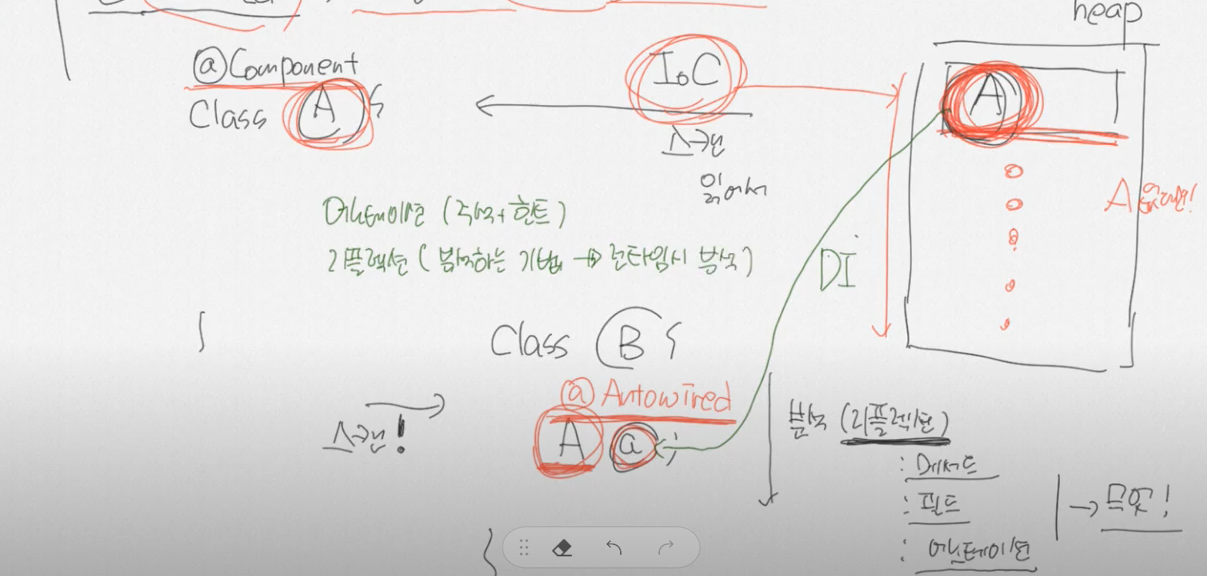 heap
@Component
Class A {
IoC
A
스캔
읽어서
A 없다면!
어노테이션 (주석+힌트)
리플렉션 (분석하는 기법 → 런타임시 분석)
DI
}
Class B {
@Autowired
A a ;
스캔!
분석 (리플렉션)
: 메서드
: 필드
: 어노테이션
→ 무엇!
}